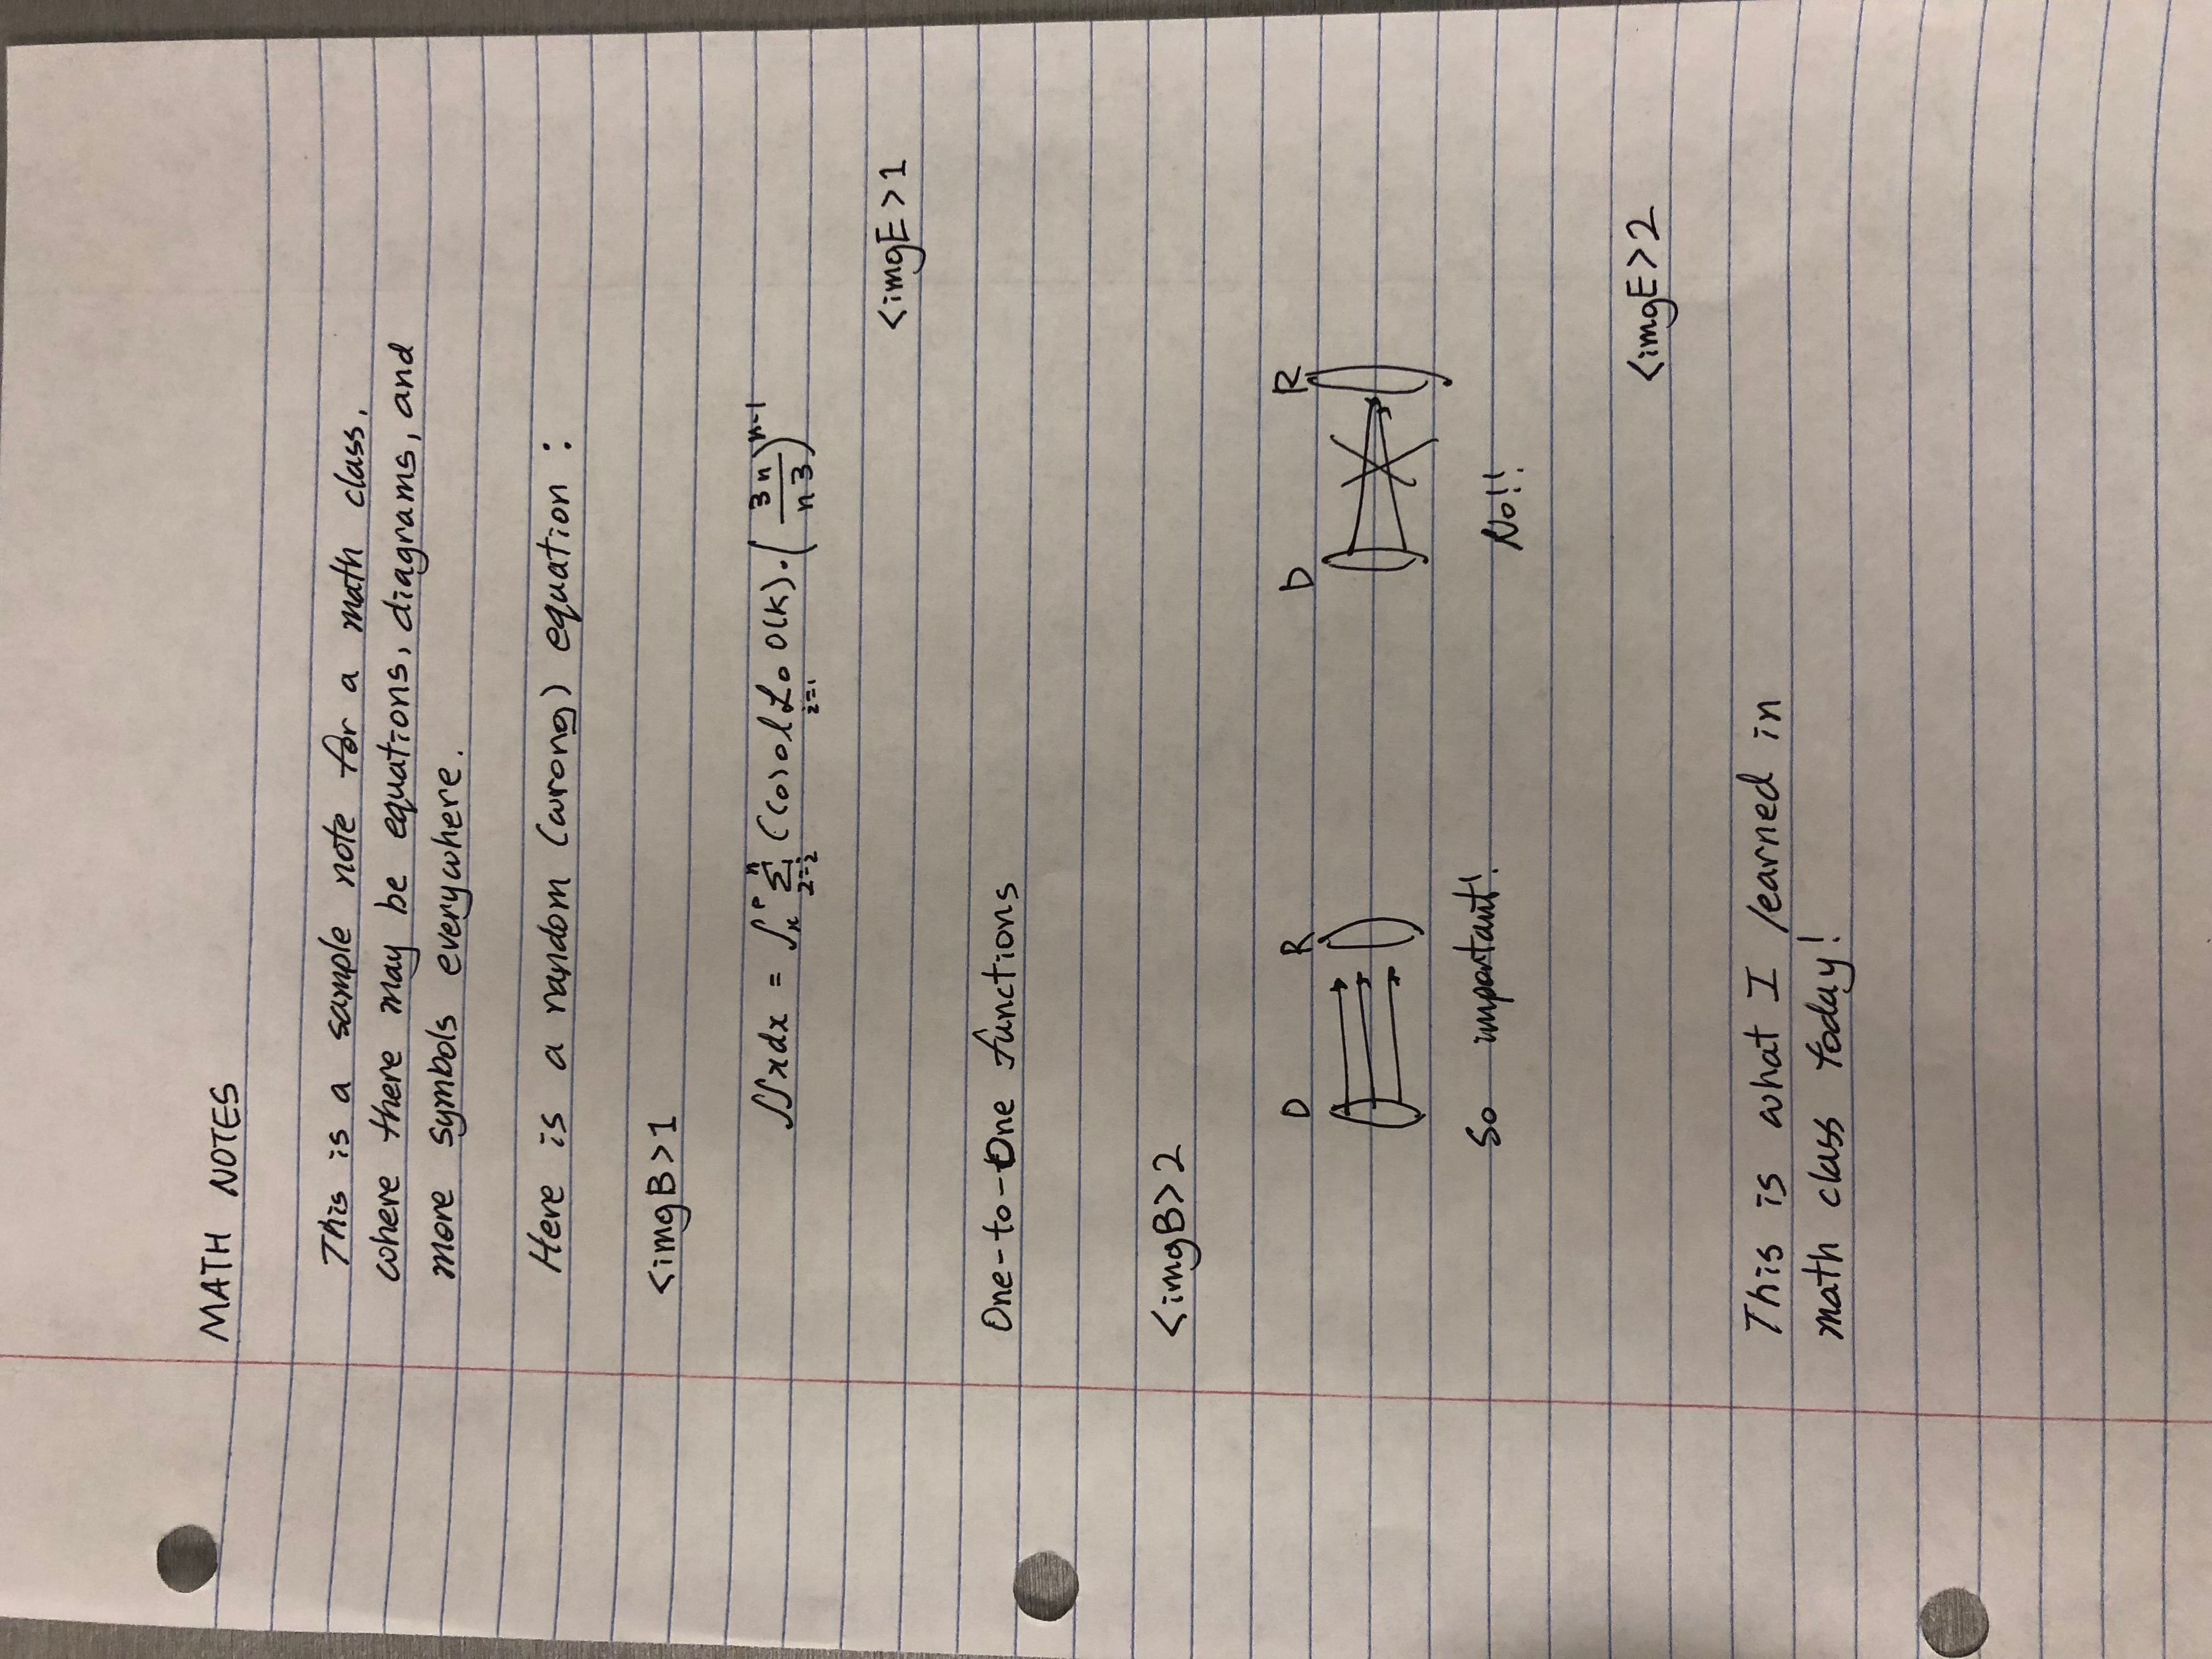 MATH NOTES
This is a sample note for a math class,
where there may be equations, diagrams, and
more symbols everywhere.
Here is a random (wrong) equation :
<imgB>1
∬xdx = ∫ₙᴾ
<imgE>1
One-to-One functions
<imgB>2
D R D R
So important! No!!
<imgE>2
This is what I learned in
math class today!